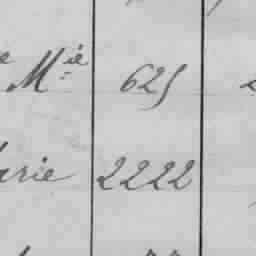 Mie 625
arie 2222